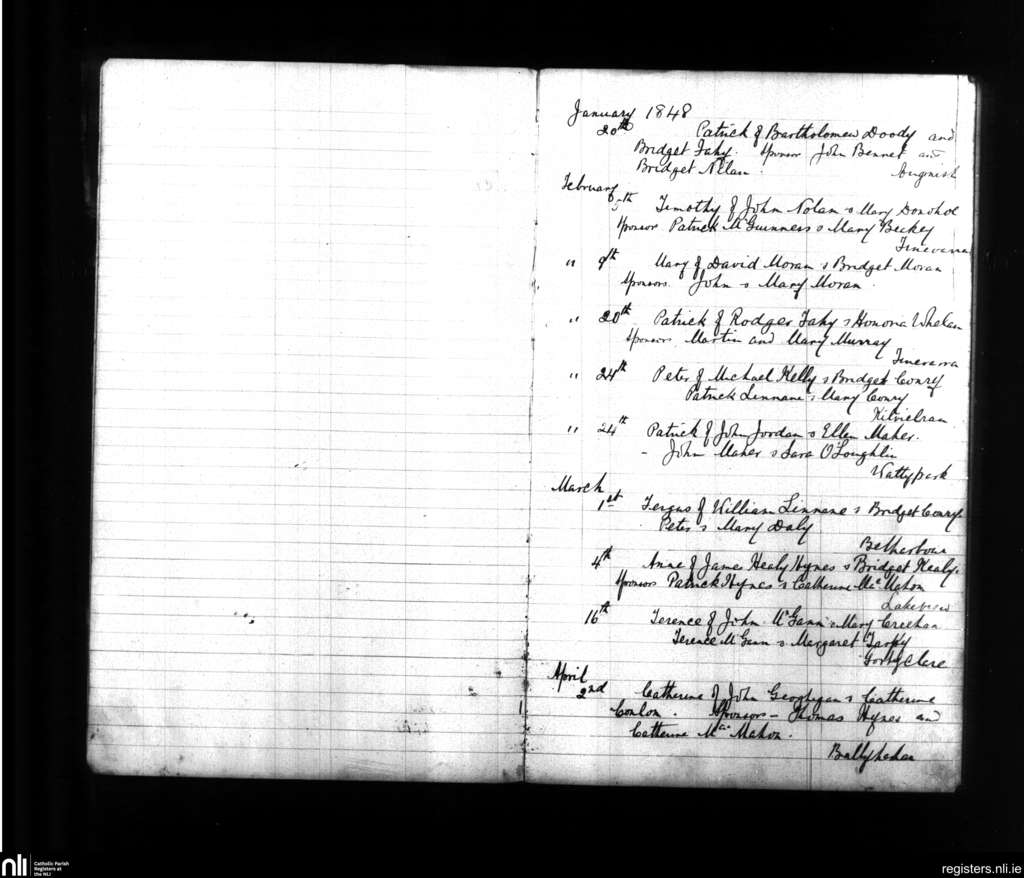 January 1848
20th Patrick of Bartholomew Doody and
Bridget Fahy. Sponsor John Bennet and
Bridget Nilan. Aughnish
February
5th Timothy of John Nolan & Mary Donohoe
Sponsor Patrick McGuinness & Mary Beckey
Finevarra
" 9th Mary of David Moran & Bridget Moran
Sponsors. John & Mary Moran.
" 20th Patrick of Rodger Fahy & Honora Whelan
Sponsors. Martin and Mary Murray
Finevarra
" 24th Peter of Michael Kelly & Bridget Conry
Patrick Linnane & Mary Conry
" 24th Patrick of John Jordan & Ellen Maher.
- John Maher & Sara O'Loughlin
Wattypark
March
1st Fergus of William Linnane & Bridget Conry
Peter & Mary Daly
4th Anne of James Healy Hynes & Bridget Healy.
Sponsors Patrick Hynes & Catherine McMahon
Lakeview
16th Terence of John McGann & Mary Creehan
Terence McGann & Margaret Tarpy
Fortyclare
April
2nd Catherine of John Geoghegan & Catherine
Conlon. Sponsors - Thomas Hynes and
Catherine MacMahon.
nli
Catholic Parish
Registers at
the NLI
registers.nli.ie